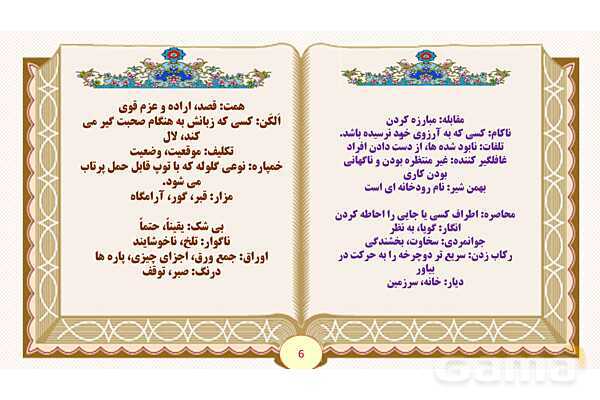 مقابله: مبارزه کردن
ناکام: کسی که به آرزوی خود نرسیده باشد.
تلفات: نابود شده ها، از دست دادن افراد
غافلگیر کننده: غیر منتظره بودن و ناگهانی
بودن کاری
بهمن شیر: نام رودخانه ای است
محاصره: اطراف کسی یا جایی را احاطه کردن
انگار: گویا، به نظر
جوانمردی: سخاوت، بخشندگی
رکاب زدن: سریع تر دوچرخه را به حرکت در
بیاور
دیار: خانه، سرزمین
همت: قصد، اراده و عزم قوی
اَلکَن: کسی که زبانش به هنگام صحبت گیر می
کند، لال
تکلیف: موقعیت، وضعیت
خمپاره: نوعی گلوله که با توپ قابل حمل پرتاب
می شود.
مزار: قبر، گور، آرامگاه
بی شک: یقیناً، حتماً
ناگوار: تلخ، ناخوشایند
اوراق: جمع ورق، اجزای چیزی، پاره ها
درنگ: صبر، توقف
6
Gama